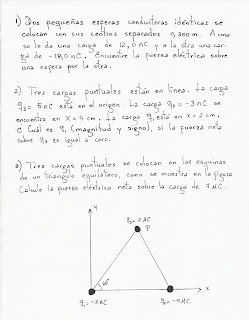 1) Dos pequeñas esferas conductoras idénticas se
colocan con sus centros separados 0,300 m. A una
se le da una carga de 12,0 nC y a la otra una car-
ga de -18,0 nC. Encuentre la fuerza eléctrica sobre
una esfera por la otra.
2) Tres cargas puntuales están en línea. La carga
q3 = 5 nC está en el origen. La carga q2 = -3 nC se
encuentra en X = 4 cm. La carga q1 está en X = 2 cm.
¿Cuál es q1 (magnitud y signo), si la fuerza neta
sobre q3 es igual a cero.
3) Tres cargas puntuales se colocan en las esquinas
de un triangulo equilatero, como se muestra en la figura
Calcule la fuerza eléctrica neta sobre la carga de 7 μC.
y
P
60°
x
q1 = -2 μC
= -4 μC